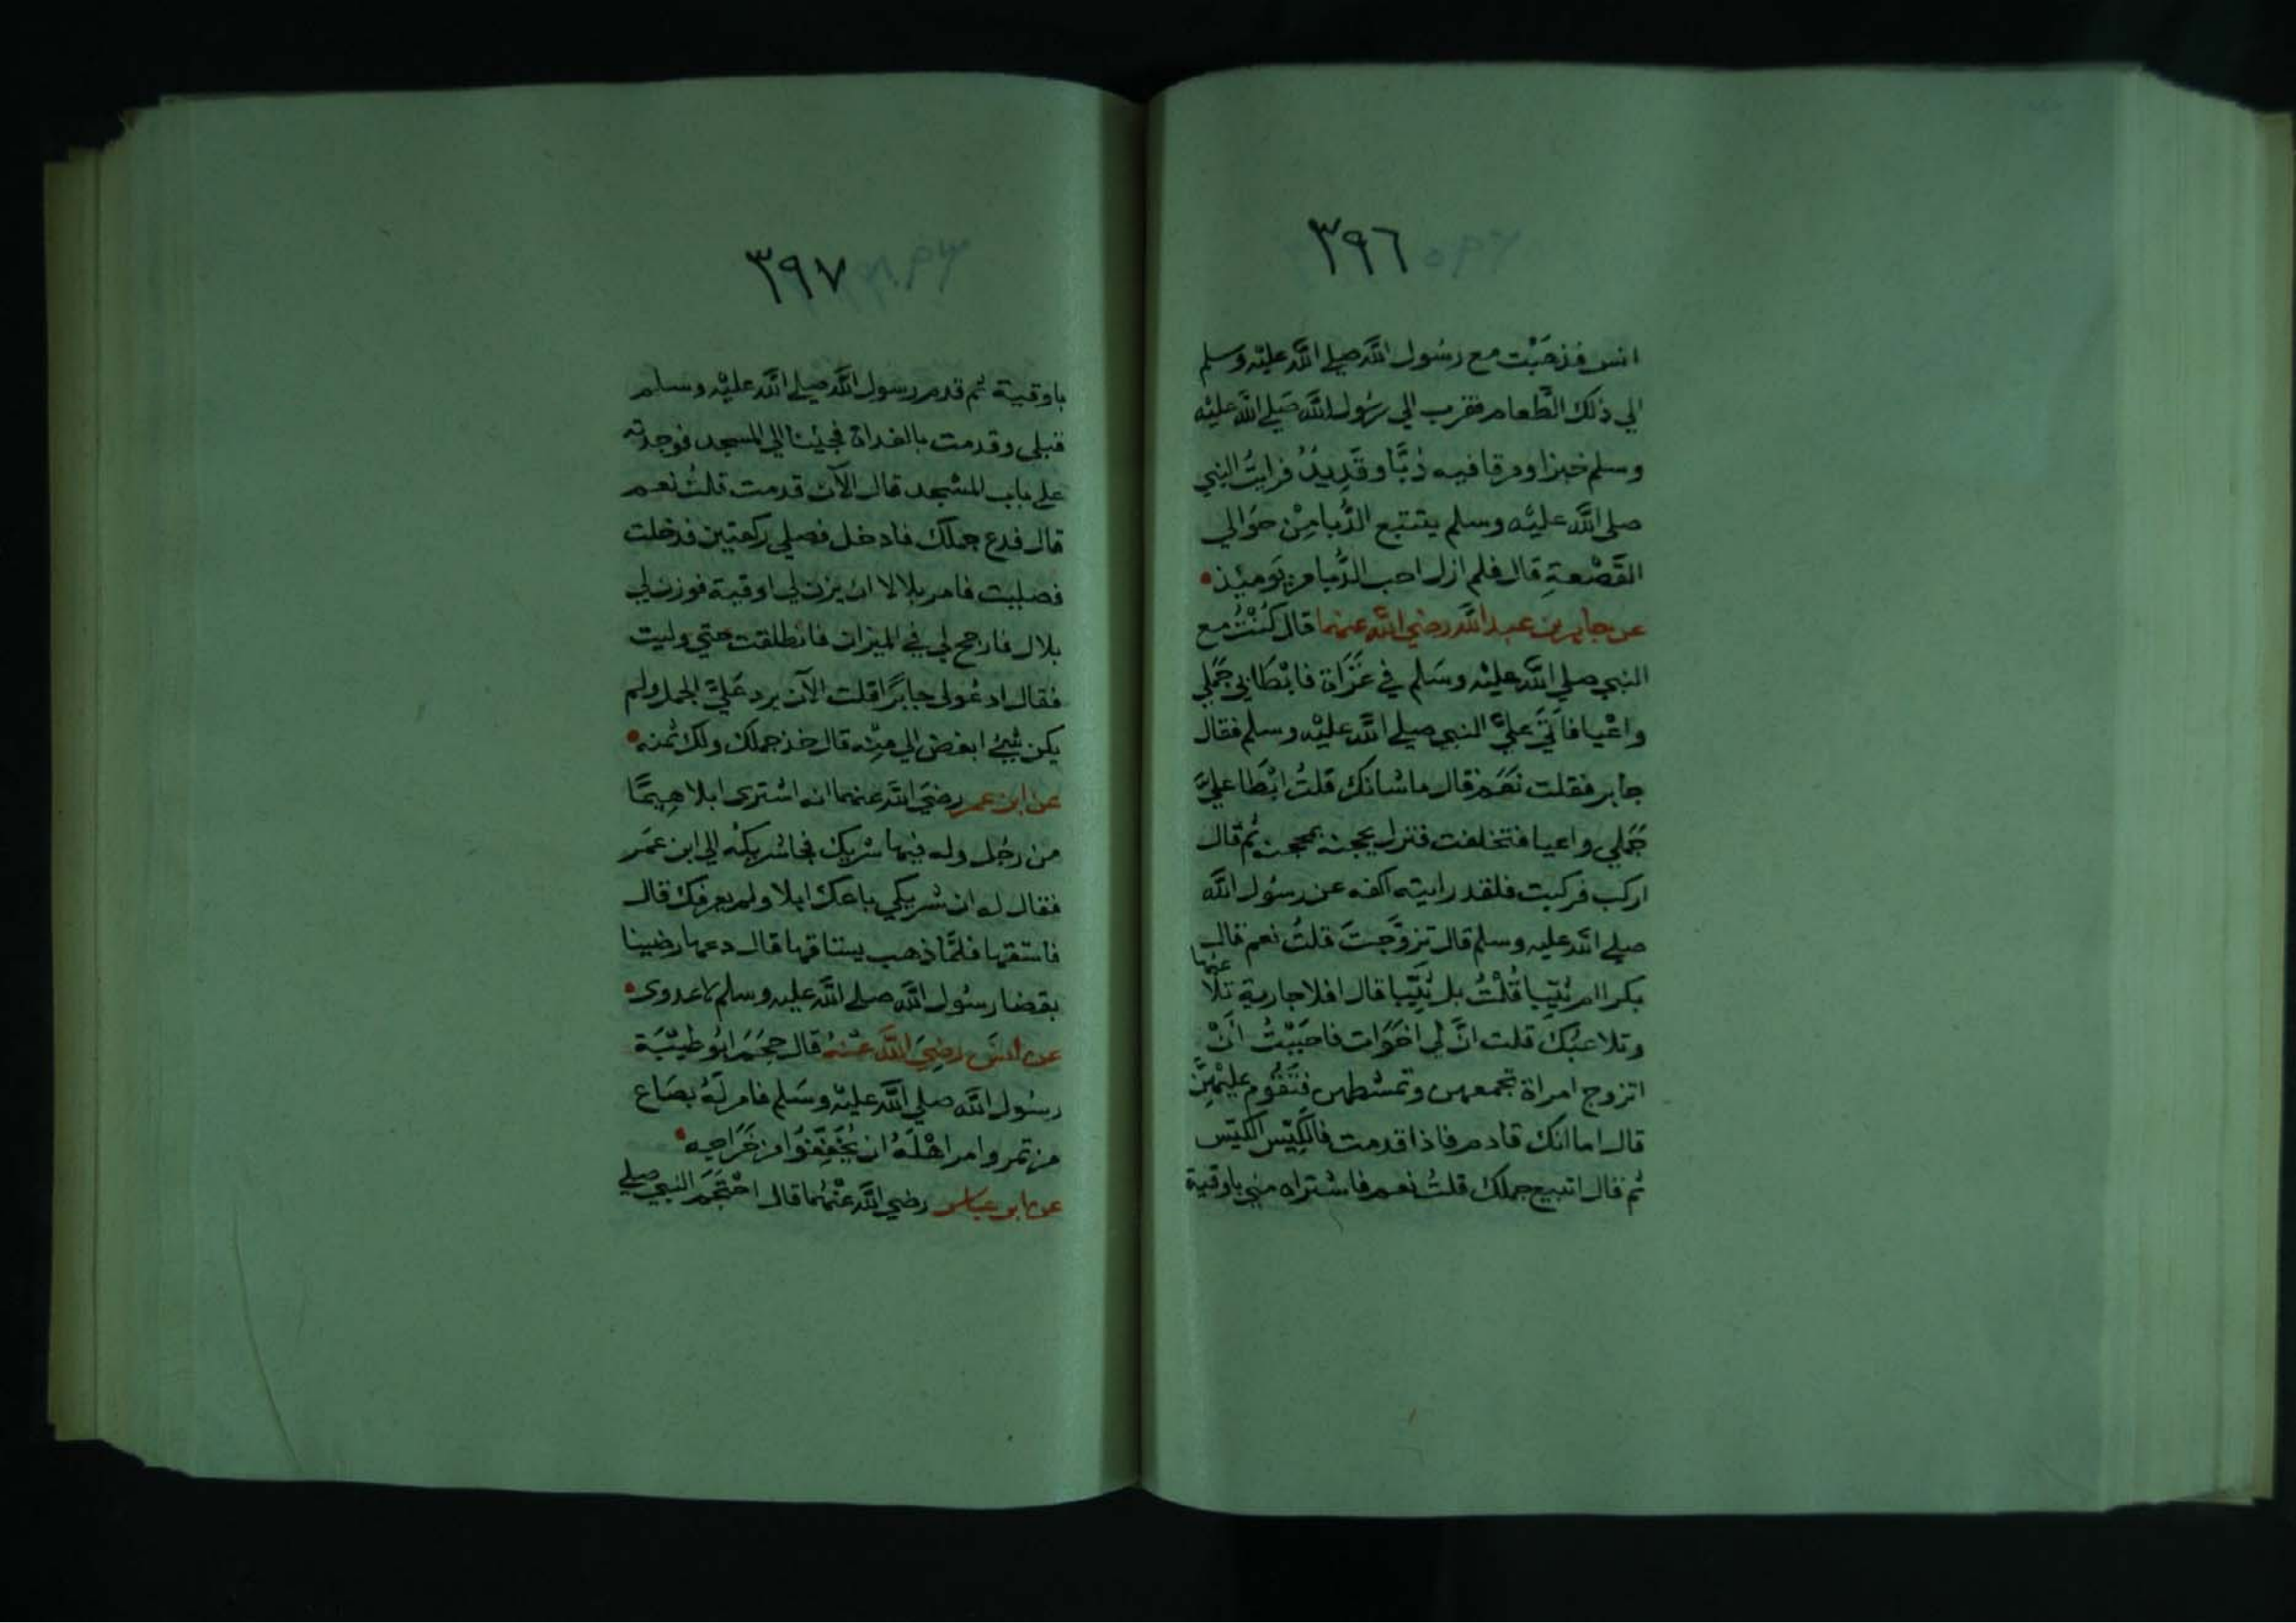 ٣٩٦
انس فذهَبْت مع رسُول اللَّه صلي اللَّه عليْه وسلم
الي ذلك الطَّعام فقرب الي رسُول اللَّه صَلي اللَّه عليْه
وسلم خبزا ومرقا فيه دُبَّا وقَدِيدٌ فرايتُ النبي
صلى اللَّه عليْه وسلم يتتبع الدُّبا مِنْ حَوَالي
القَصْعةِ قال فلم ازل احب الدُّبا من يَوميئذ
عن جابر بن عبد اللَّه رضي اللَّه عنهما قال كُنْتُ مع
النبي صلي اللَّه عليْه وسَلم في غَزَاة فابْطَا بي جَمَلي
واعْيا فاَتَي عليَّ النبي صلي اللَّه عليْه وسلم فقال
جابر فقلت نَعَم قال ما شانك قلتُ ابْطَا عليَّ
جَمَلي واعيا فتخلفت فنزل يحجنه بمحجنه ثم قال
اركب فركبت فلقد رايته اكفه عن رسُول اللَّه
صلي اللَّه عليه وسلم قال تزوَّجتَ قلتُ نعم قال
بكرا ام ثَيّبا قُلْتُ بل ثَيّبا قال افلا جارية تلا عبُها
وتلاعبُك قلت انَّ لي اخَوَات فاحَبَبْتُ اَنْ
اتزوج امراة تجمعهن وتمشطهن فتَقُوم عليْهِنَّ
قال اما انك قادم فاذا قدمت فالكيّس الكيّس
ثم قال اتبيع جملك قلتُ نعم فاشتراه مني باوقية
٣٩٧
باوقية ثم قدم رسول اللَّه صلي اللَّه عليْه وسلم
قبلي وقدمت بالغداة فجيئنا الي المسجد فوجدته
علي باب المسْجد قال الآن قدمت قلتُ نعم
قال فدع جملك فادخل فصلي ركعتين فدخلت
فصليت فامر بلالا ان يزن لي اوقية فوزن لي
بلال فارجح لي في الميزان فانطلقت حتي وليت
فقال ادعُو لي جابرًا قلت الآن يرد عَليَّ الجمل ولم
يكن شيئ ابغض الي مِنْه قال خذ جملك ولك ثمنه
عن ابن عمر رضيَ اللَّه عنهما انه اشترى ابلا هِيمًا
من رجُل وله فيها شريك فجا شريكُه الي ابن عمَر
فقال له ان شريكي باعك ابلا ولم يعرفك قال
فاستقها فلمَّا ذهب يستاقها قال دعها رضينا
بقضا رسُول اللَّه صلي اللَّه عليه وسلم لا عدوى
عن انسَ رضِيَ اللَّه عَنْهُ قال حجَمَ ابُو طَيْبَة
رسُول اللَّه صلي اللَّه عليْه وسَلم فامر لَهُ بصَاع
من تمر وامر اهْلَهُ ان يُخَفِّفُوا من خَرَاجه
عن ابن عباس رضي اللَّه عنْهُما قال احْتَجَمَ النبي صلي